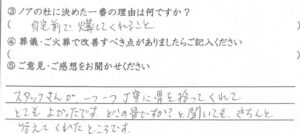 ③ノアの杜に決めた一番の理由は何ですか?
( 自宅前で燻してくれること )
④葬儀・ご火葬で改善すべき点がありましたらご記入ください
( )
⑤ご意見・ご感想をお聞かせください
スタッフさんが一つ一つ丁寧に骨を拾ってくれて
とてもよかったです。どこの骨ですか?と聞いても、きちんと
答えてくれたところです。